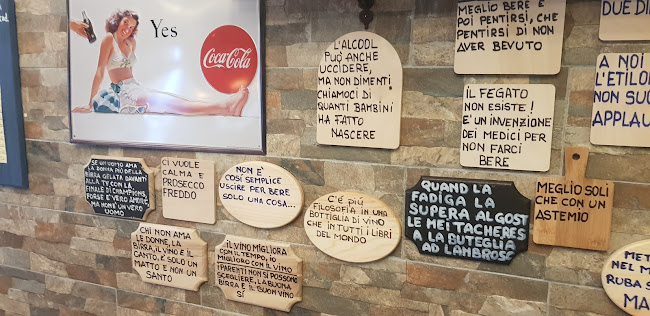 Yes
Coca-Cola
L'ALCOOL
PUÒ ANCHE
UCCIDERE,
MA NON DIMENTI
CHIAMOCI DI
QUANTI BAMBINI
HA FATTO
NASCERE
MEGLIO BERE E
POI PENTIRSI, CHE
PENTIRSI DI NON
AVER BEVUTO
DUE DI
IL FEGATO
NON ESISTE!
E' UN INVENZIONE
DEI MEDICI PER
NON FARCI
BERE
A NOI
L'ETILO
NON SUO
APPLAU
SE UN UOMO AMA
LA DONNA PIÙ DELLA
BIRRA GELATA DAVANTI
ALLA TV CON LA
FINALE DI CHAMPIONS,
FORSE E' VERO AMORE,
MA NON E' UN VERO
UOMO
CI VUOLE
CALMA E
PROSECCO
FREDDO
NON E'
COSÌ SEMPLICE
USCIRE PER BERE
UNA SOLO COSA...
C'E' PIÙ
FILOSOFIA IN UNA
BOTTIGLIA DI VINO
CHE IN TUTTI I LIBRI
DEL MONDO
QUAND LA
FADIGA LA
SUPERA AL GOST
LE MEI TACHERES
A LA BUTEGLIA
AD LAMBROSE
MEGLIO SOLI
CHE CON UN
ASTEMIO
CHI NON AMA
LE DONNE, LA
BIRRA, IL VINO E IL
CANTO, E' SOLO UN
MATTO E NON UN
SANTO
IL VINO MIGLIORA
CON IL TEMPO, IO
MIGLIORO CON IL VINO
I PARENTI NON SI POSSONO
SCEGLIERE, LA BUONA
BIRRA E IL BUON VINO
SÌ
MET
NEL M
RUBA S
MA